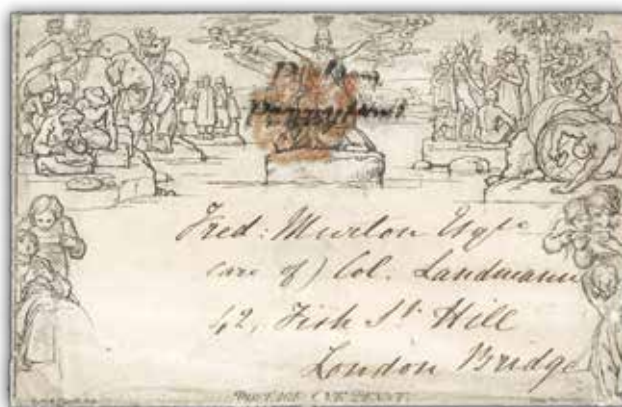 Penny Post
Fred: Murton Esqre
care of) Col. Landmann
42, Fish St. Hill
London Bridge
POSTAGE ONE PENNY.